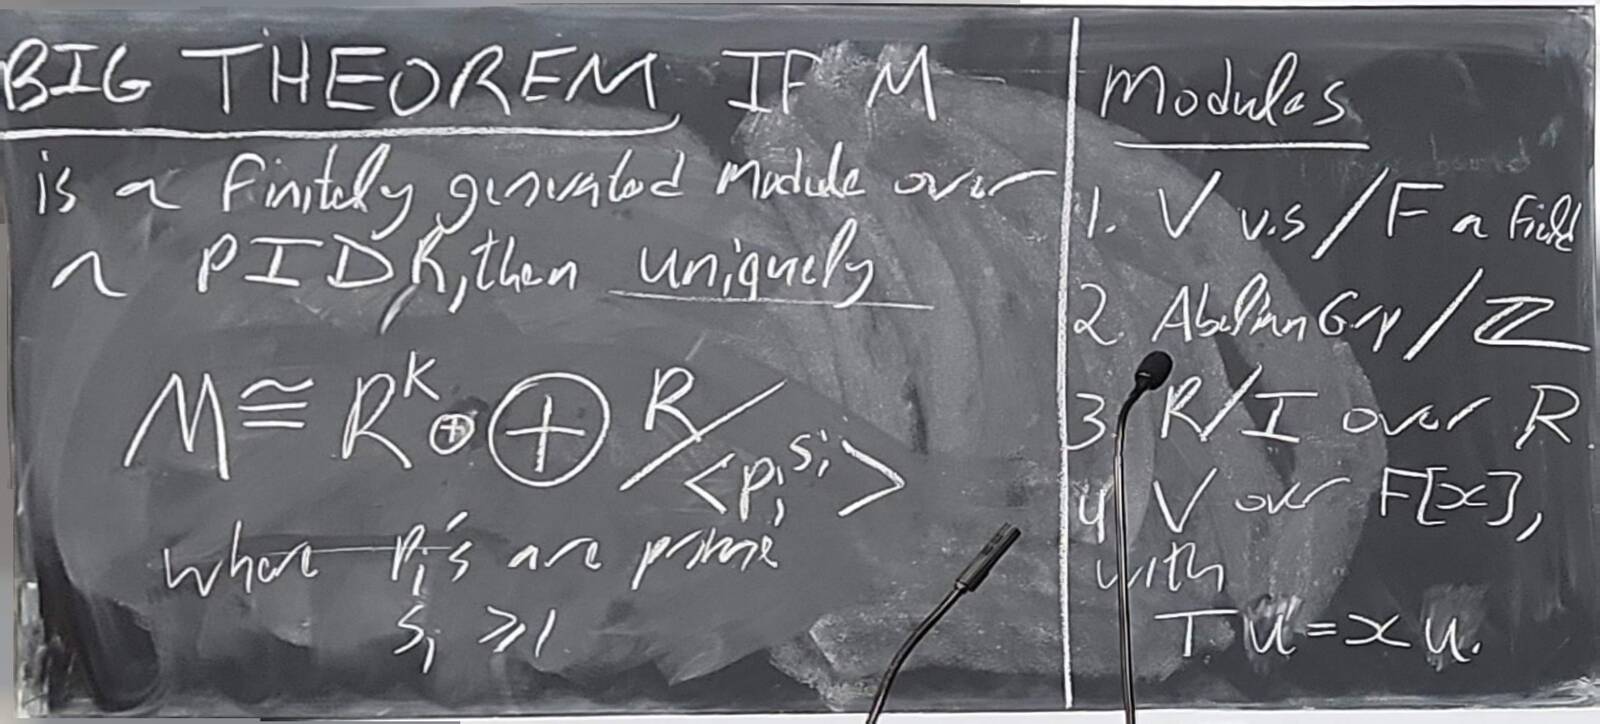 BIG THEOREM IF M
is a finitely generated module over
a PID R, then uniquely
M ≅ R^k ⊕ ⊕ R/<p_i^{s_i}>
where p_i's are prime
s_i ≥ 1
Modules
1. V v.s / F a field
2. Abelian Grp / ℤ
3. R/I over R.
4 V over F[x],
with
T u = x u.